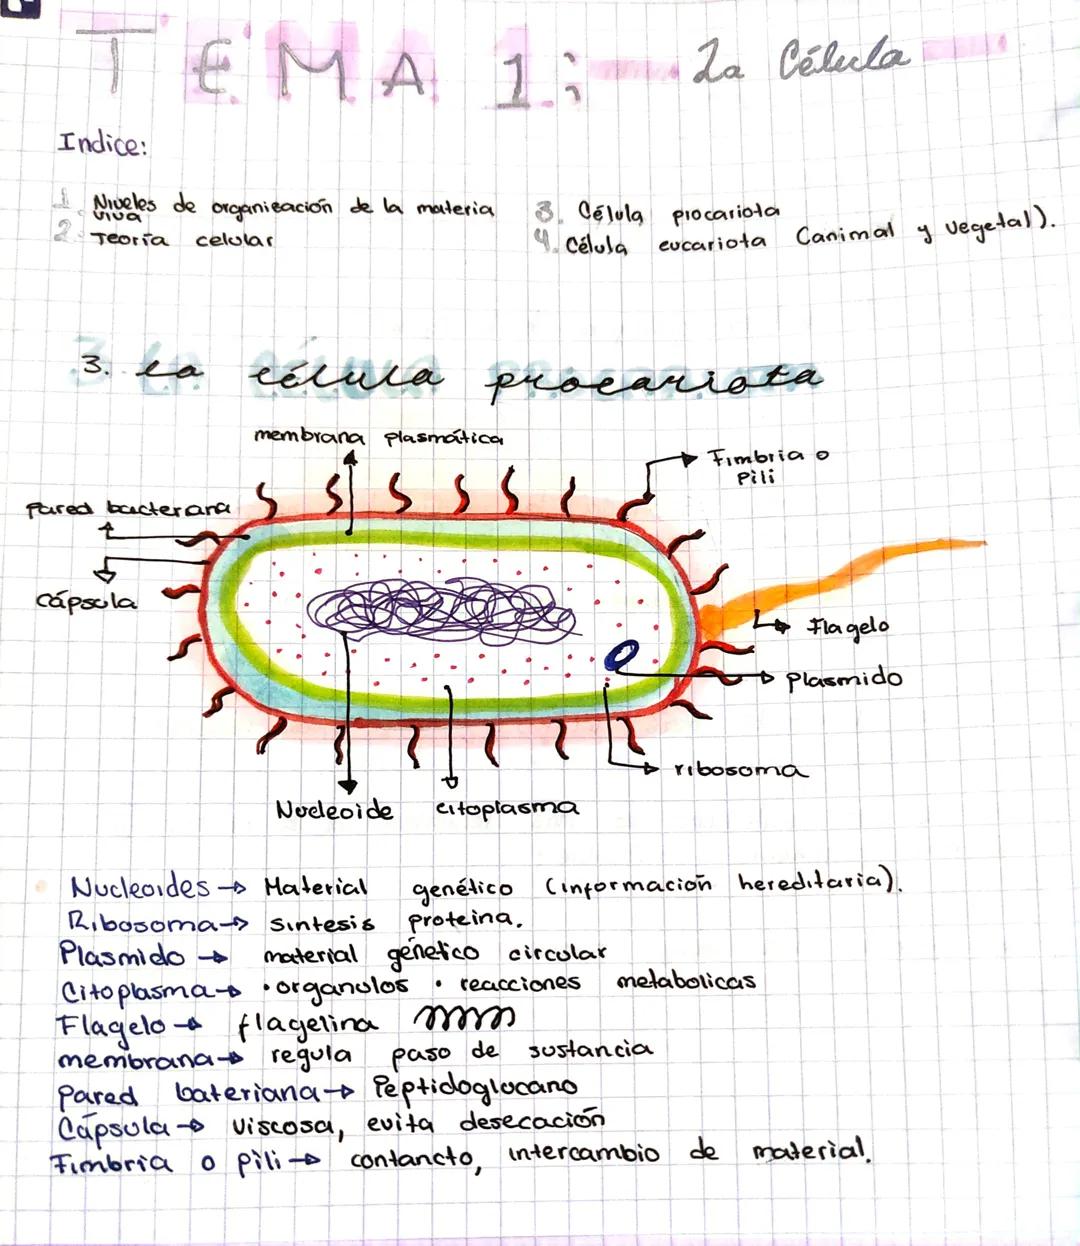 TEMA 1: La Célula
Indice:
1. Niveles de organización de la materia
viva
2. Teoría celular
3. Célula procariota
4. Célula eucariota (animal y vegetal).
3. La célula procariota
membrana plasmática
Fimbria o
Pili
Pared bacterana
Cápsula
Flagelo
Plasmido
ribosoma
Nucleoide
citoplasma
Nucleoides → Material genético (información hereditaria).
Ribosoma → sintesis proteina.
Plasmido → material génetico circular
Citoplasma → • organulos • reacciones metabolicas
Flagelo → flagelina
membrana → regula paso de sustancia
Pared bateriana → Peptidoglucano
Cápsula → viscosa, evita desecación
Fimbria o pili → contancto, intercambio de material.